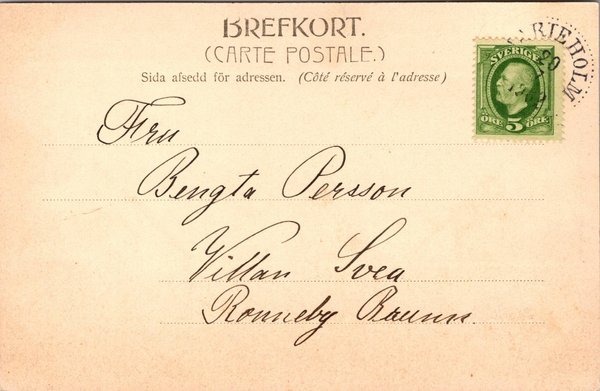 BREFKORT.
(CARTE POSTALE.)
Sida afsedd för adressen. (Côté réservé à l'adresse)
MARIEHOLM
20
7
SVERIGE
ÖRE 5 ÖRE
Fru
Bengta Persson
Villan Svea
Ronneby Brunn